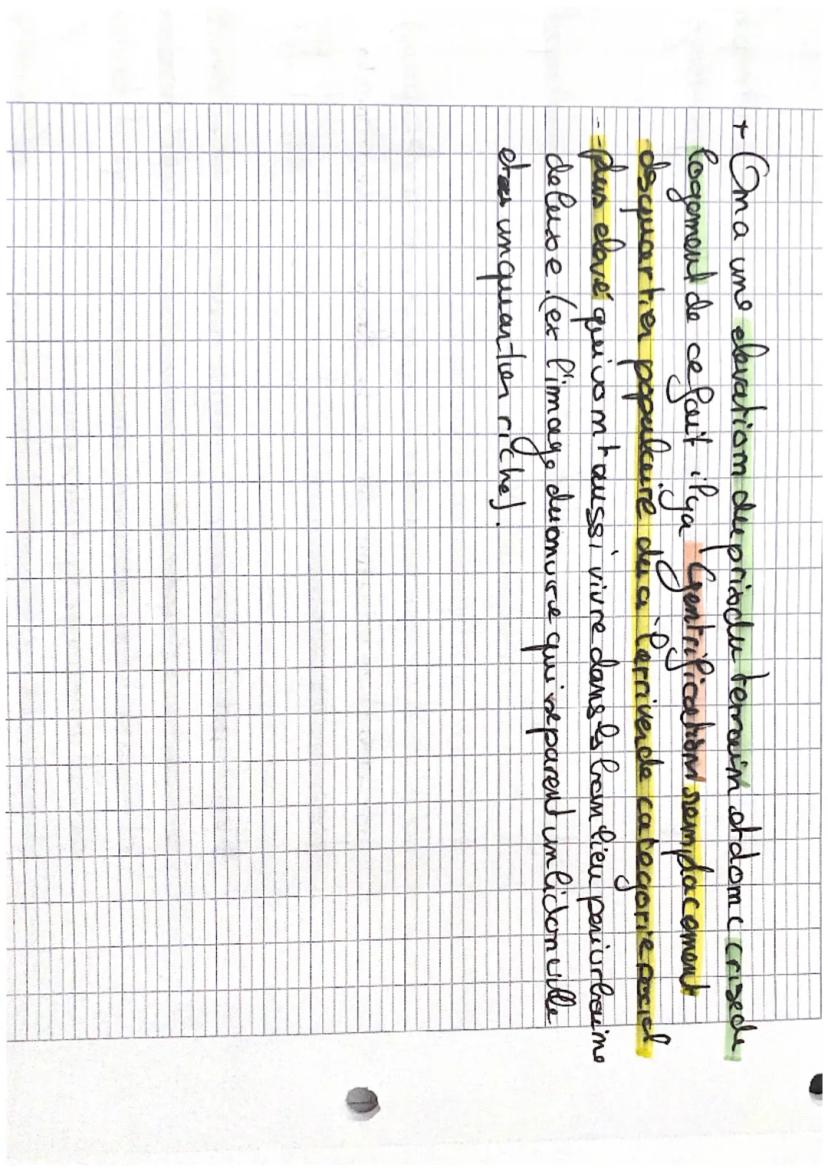 + On a une elevation du prix du terrain et donc crise de
logement de ce fait il y a Gentrification remplacement
des quartier populaire du a l'arriver de categorie social
- plus elevé qui vont aussi vivre dans les banlieu periurbaine
de luxe. (ex l'image du onvre qui separent un bidonville
et un quartier riche).